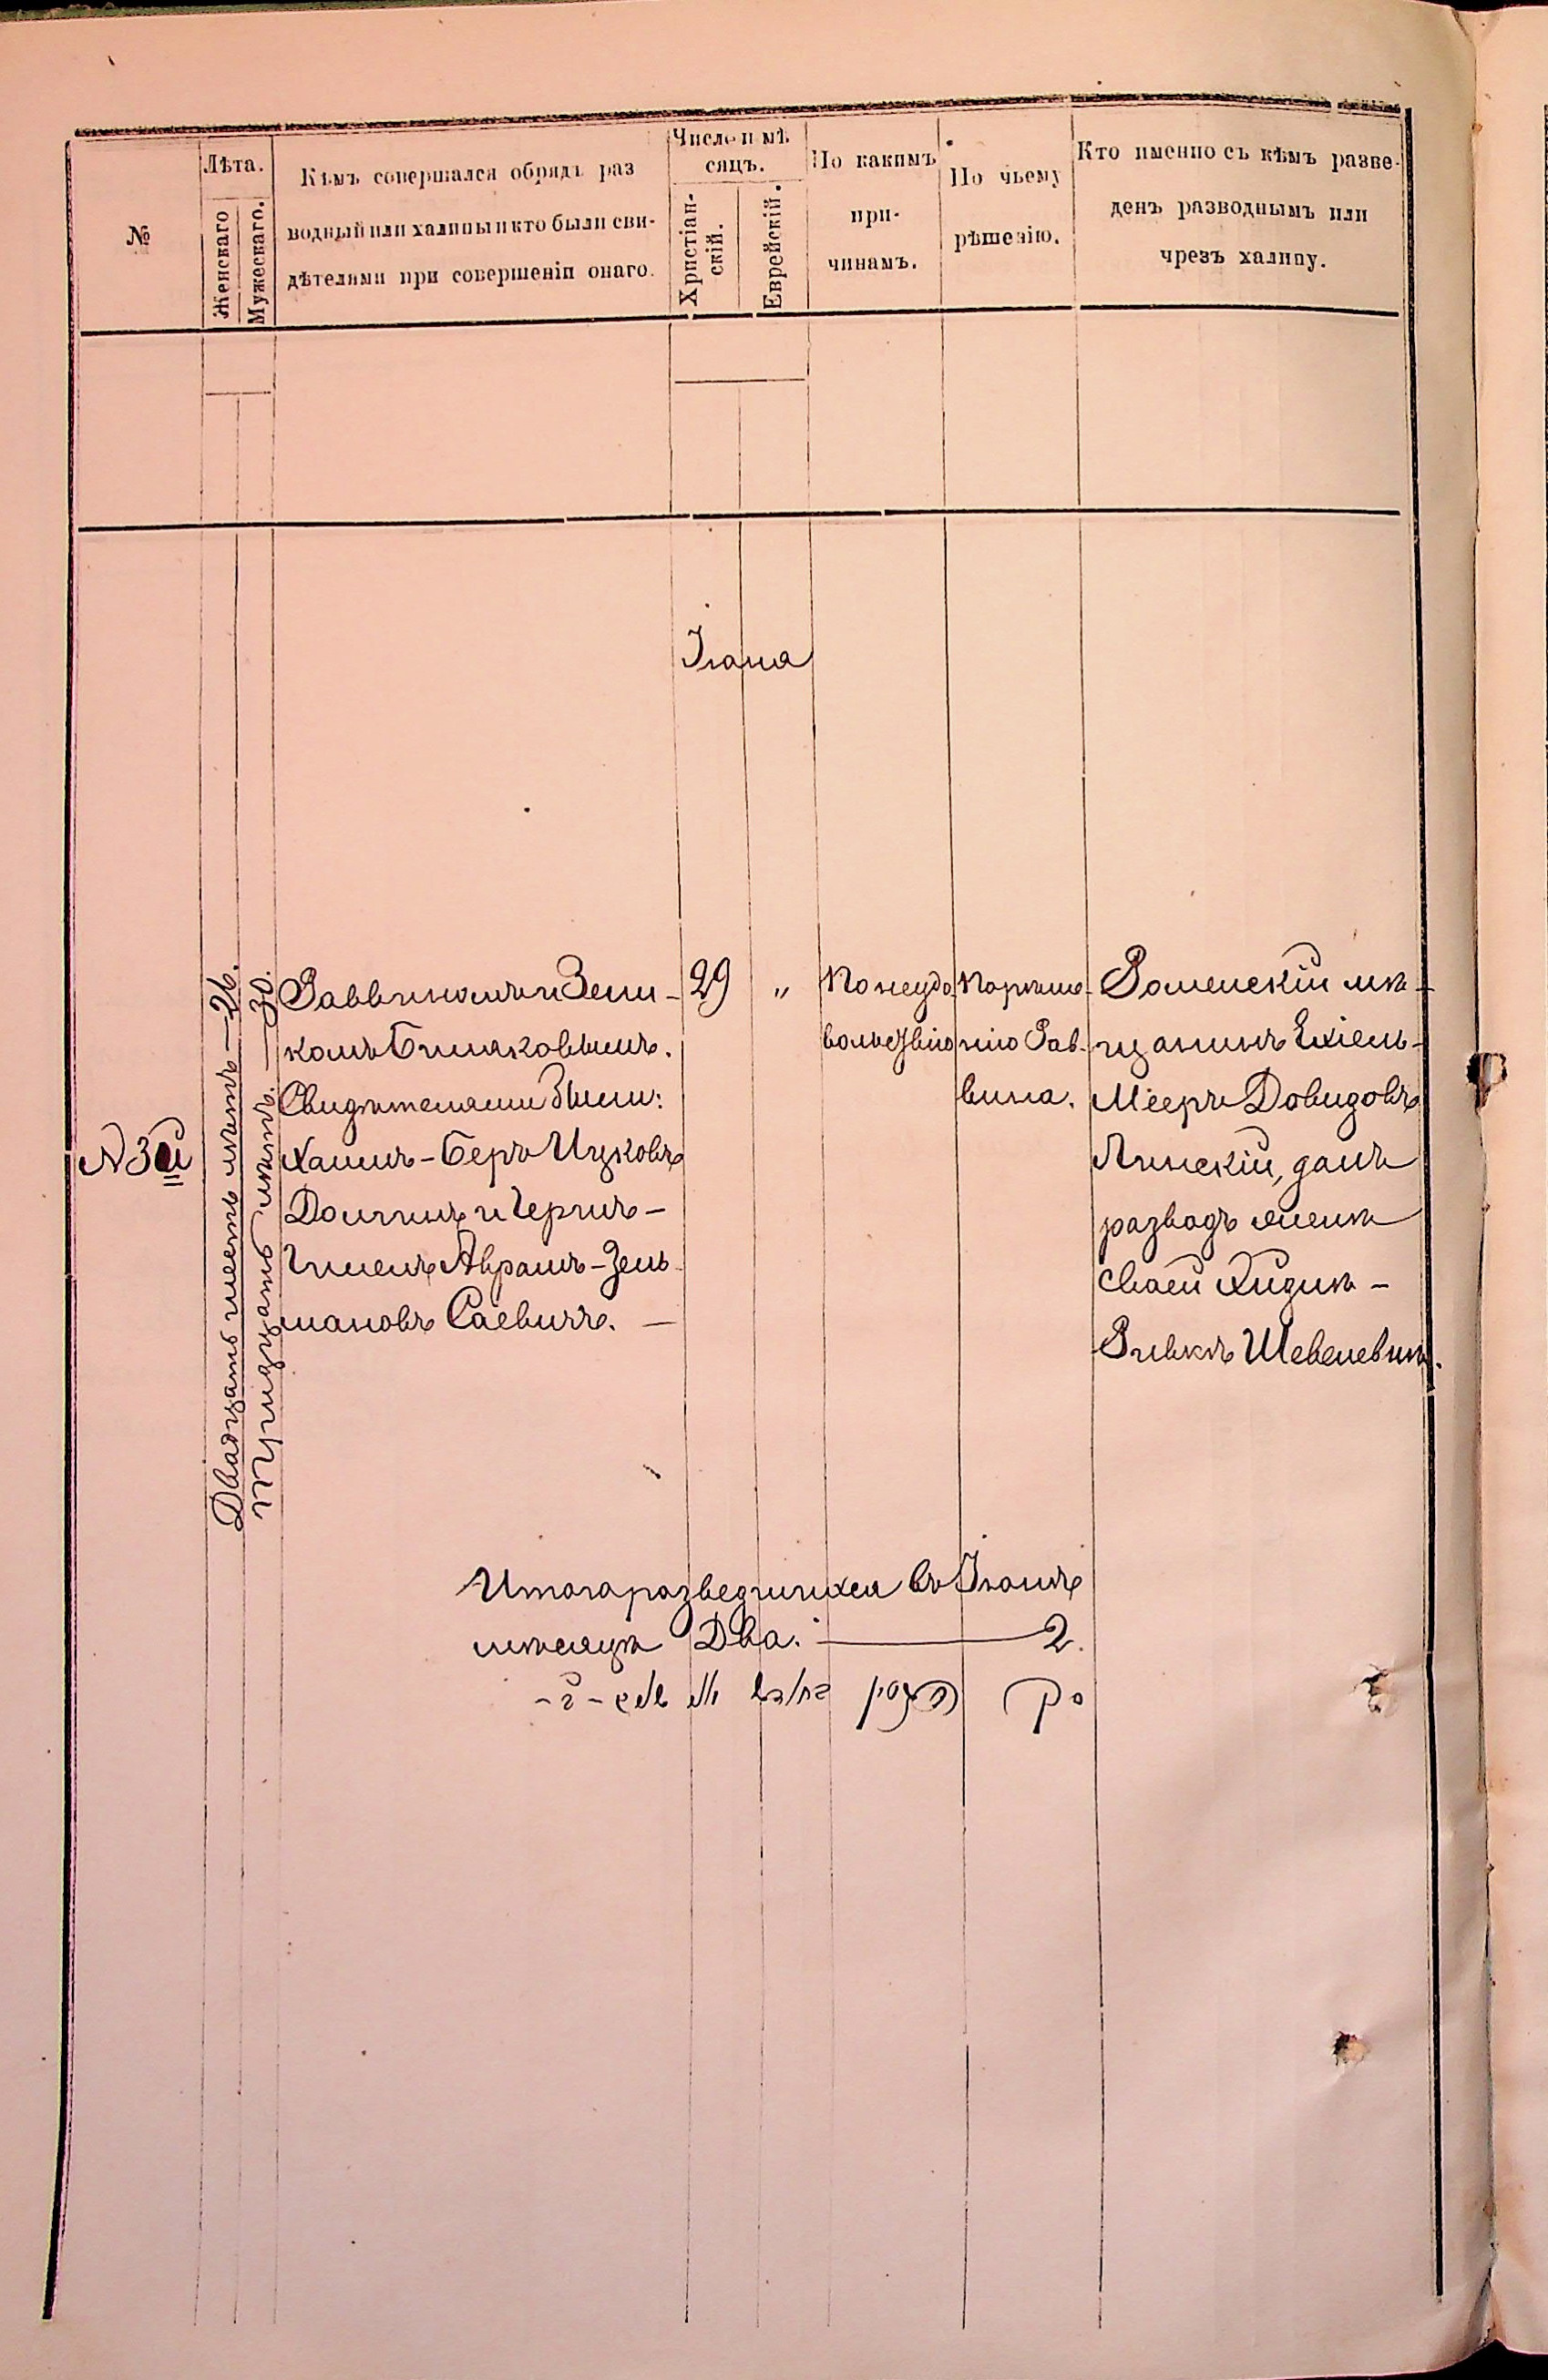 №
Лѣта.
Женскаго
Мужескаго.
Кѣмъ совершался обрядъ раз
водный или халицы и кто были сви-
дѣтелями при совершеніи онаго.
Число и мѣ
сяцъ.
Христіан-
скій.
Еврейскій.
По какимъ
при-
чинамъ.
По чьему
рѣшенію.
Кто именно съ кѣмъ разве-
денъ разводнымъ или
чрезъ халицу.
Іюня
N 3й
Двадцать шесть лѣтъ — 26.
Тридцать лѣтъ. — 30.
Раввиномъ
Свидѣтелями были:
Хаимъ-Беръ Ицковъ
Абрамъ-Зель-
мановъ Саевичъ. —
29 "
По неудо
вольствію
По рѣше-
нію Рав-
вина.
Роменскій мѣ-
щанинъ Ехіель-
Мееръ Довидовъ
Линскій, далъ
разводъ женѣ
своей
Ривкѣ Шевелевнѣ.
Итого разведшихся въ Іюнѣ
мѣсяцѣ Два. — 2.